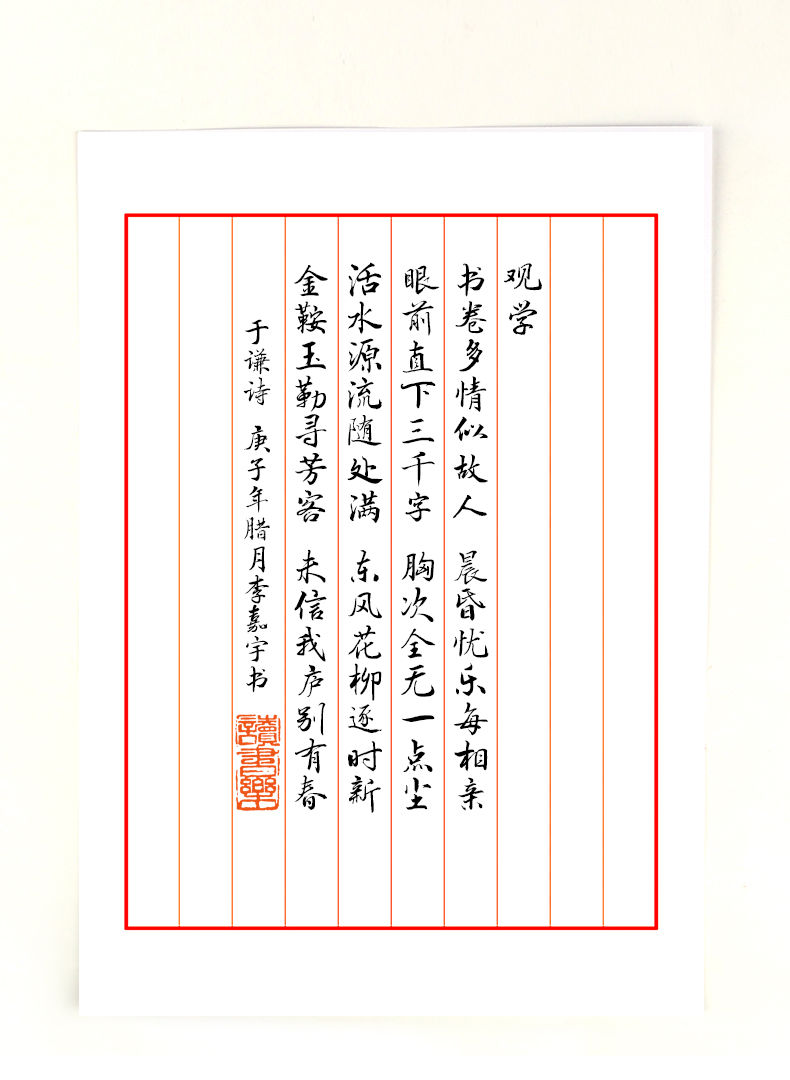 观学
书卷多情似故人 晨昏忧乐每相亲
眼前直下三千字 胸次全无一点尘
活水源流随处满 东风花柳逐时新
金鞍玉勒寻芳客 未信我庐别有春
于谦诗 庚子年腊月李嘉宇书
讀書樂